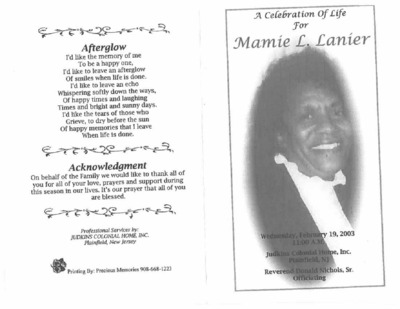 Afterglow
I'd like the memory of me
To be a happy one,
I'd like to leave an afterglow
Of smiles when life is done.
I'd like to leave an echo
Whispering softly down the ways,
Of happy times and laughing
Times and bright and sunny days.
I'd like the tears of those who
Grieve, to dry before the sun
Of happy memories that I leave
When life is done.
Acknowledgment
On behalf of the Family we would like to thank all of
you for all of your love, prayers and support during
this season in our lives. It's our prayer that all of you
are blessed.
Professional Services by:
JUDKINS COLONIAL HOME, INC.
Plainfield, New Jersey
Printing By: Precious Memories 908-668-1223
A Celebration Of Life
For
Mamie L. Lanier
Wednesday, February 19, 2003
11:00 A.M.
Judkins Colonial Home, Inc.
Plainfield, NJ
Reverend Donald Nichols, Sr.
Officiating